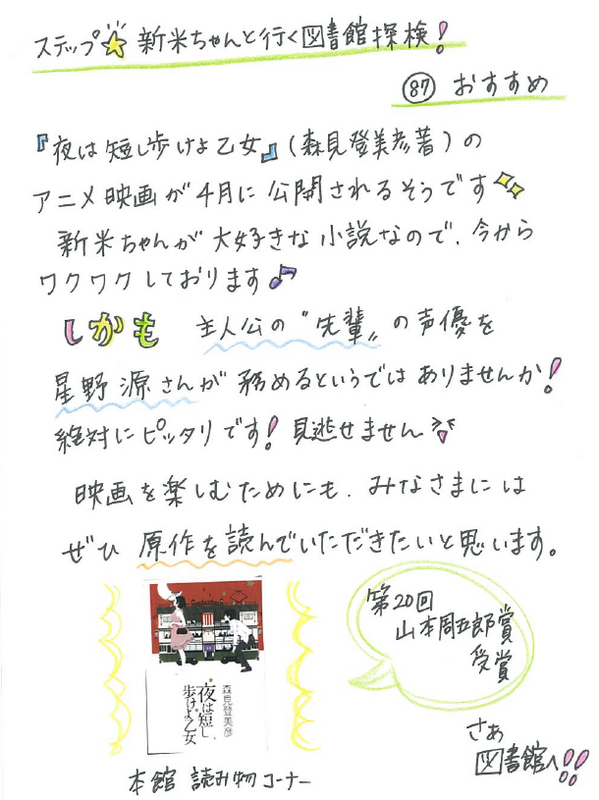 ステップ☆新米ちゃんと行く図書館探検!
㊇ おすすめ
『夜は短し歩けよ乙女』(森見登美彦著)の
アニメ映画が4月に公開されるそうです
新米ちゃんが大好きな小説なので、今から
ワクワクしております♪
しかも 主人公の〝先輩〟の声優を
星野源さんが務めるというではありませんか!
絶対にピッタリです!見逃せません
映画を楽しむためにも、みなさまには
ぜひ原作を読んでいただきたいと思います。
第20回
山本周五郎賞
受賞
森見登美彦
夜は短し
歩けよ乙女
本館 読み物コーナー
さあ
図書館へ!!